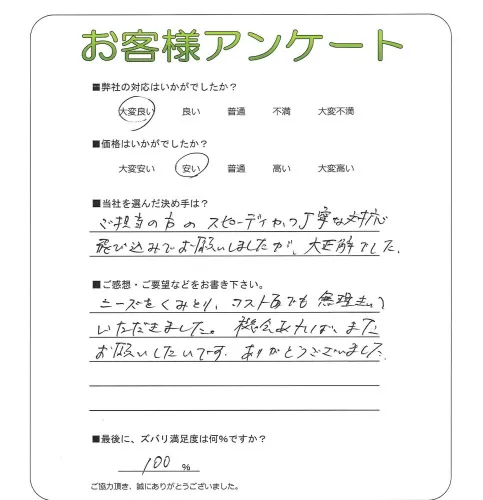 お客様アンケート
■弊社の対応はいかがでしたか?
大変良い 良い 普通 不満 大変不満
■価格はいかがでしたか?
大変安い 安い 普通 高い 大変高い
■当社を選んだ決め手は?
ご担当の方のスピーディかつ丁寧な対応
飛び込みでお願いしましたが、大正解でした。
■ご感想・ご要望などをお書き下さい。
ニーズをくみとり、コスト面でも無理を
いただきました。機会あれば、また
お願いしたいです。ありがとうございました。
■最後に、ズバリ満足度は何%ですか?
100 %
ご協力頂き、誠にありがとうございました。